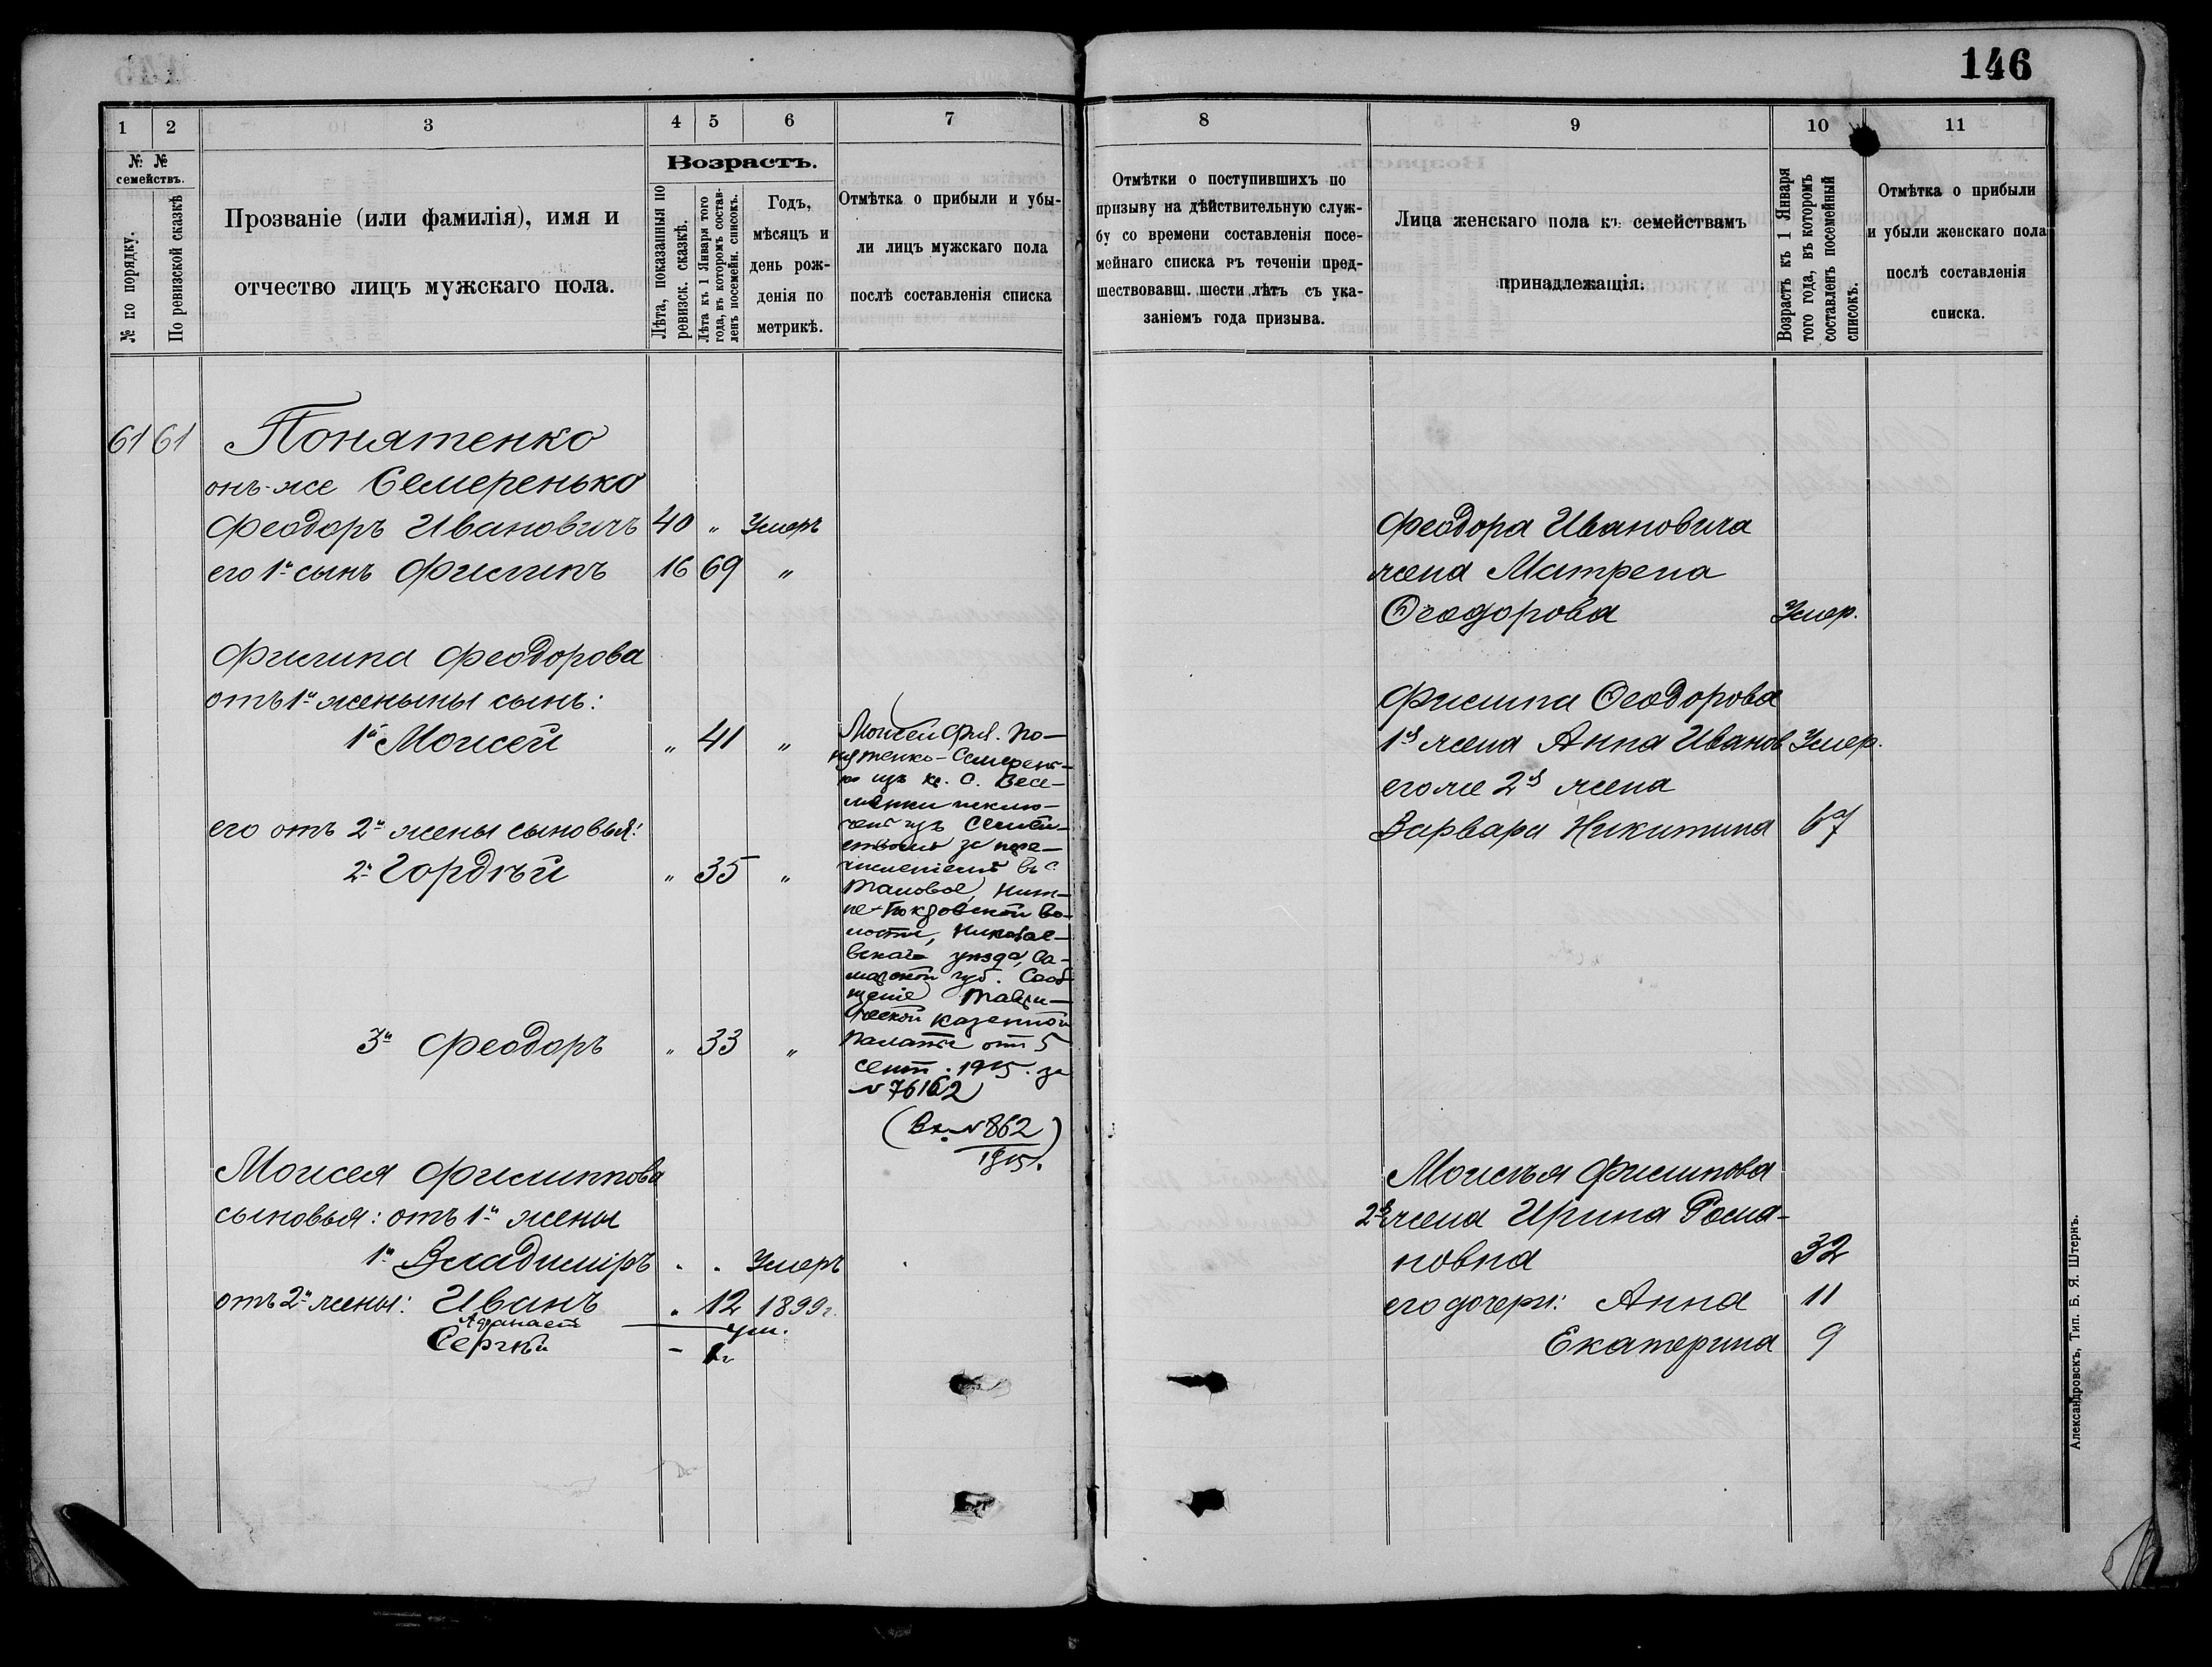 146
1 2 3 4 5 6 7
№ №
семействъ.
№ по порядку.
По ревизской сказкѣ
Прозваніе (или фамилія), имя и
отчество лицъ мужскаго пола.
Возрастъ.
Лѣта, показанныя по
ревизск. сказкѣ.
Лѣта къ 1 Января того
года, въ которомъ состав-
ленъ посемейн. списокъ.
Годъ,
мѣсяцъ и
день рож-
денія по
метрикѣ.
Отмѣтка о прибыли и убы-
ли лицъ мужскаго пола
послѣ составленія списка
61 61 Понятенко
онъ-же Семеренько
Феодоръ Ивановичъ 40 „ Умеръ
его 1й сынъ Филипъ 16 69 „
Филипа Феодорова
отъ 1й женыны сынъ:
1й Моисей „ 41 „
его отъ 2й жены сыновья:
2й Гордѣй „ 35 „
3й Феодоръ „ 33 „
Моисей Фил. По-
нятенко-Семерень-
ко изъ кр. С. Весе-
исклю-
ченъ изъ
за пере-
численіемъ въ с.
Таловое,
-Покровской во-
лости, Николае-
вскаго уѣзда, Са-
марской губ. Сооб-
щеніе Таври-
ческой Казенной
Палаты отъ 5
сент. 1915 г. за
№ 76162
(Вх. № 862
1915 г.)
Моисея Филиппова
сыновья: отъ 1й жены
1й Владиміръ „ „ Умеръ
отъ 2й жены: Иванъ „ 12 1899 г.
Афанасій ум.
Сергѣй - 1 г
8 9 10 11
Отмѣтки о поступившихъ по
призыву на дѣйствительную служ-
бу со времени составленія посе-
мейнаго списка въ теченіи пред-
шествовавш. шести лѣтъ съ ука-
заніемъ года призыва.
Лица женскаго пола къ семействамъ
принадлежащія.
Возрастъ къ 1 Января
того года, въ которомъ
составленъ посемейный
списокъ.
Отмѣтка о прибыли
и убыли женскаго пола
послѣ составленія
списка.
Феодора Ивановича
жена Матрена
Ѳеодорова Умер.
Филипа Ѳеодорова
1я жена Анна Иванов. Умер.
его же 2я жена
Варвара Никитина 67
Моисѣя Филипова
2я жена Ирина Рома-
новна 32
его дочери: Анна 11
Екатерина 9
Александровскъ, Тип. Б. Я. Штернъ.